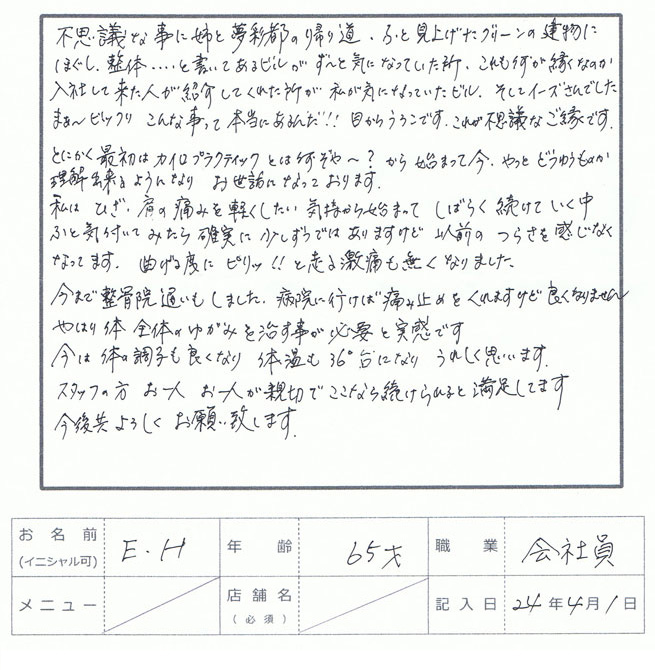 不思議な事に姉と夢彩都の帰り道、ふと見上げたグリーンの建物に
ほぐし、整体‥‥と書いてあるビルがずーと気になっていた所、これも何かの縁なのか
入社して来た人が紹介してくれた所が私が気になっていたビル、そしてイーズさんでした
まぁ〜ビックリこんな事って本当にあるんだ!!目からうろこです。これが不思議なご縁です。
とにかく最初はカイロプラクティックとは何ぞや〜?から始まって今、やっとどうゆうものか
理解出来るようになりお世話になっております。
私はひざ、肩の痛みを軽くしたい気持から始まってしばらく続けていく中
ふと気付いてみたら確実に少しずつではありますけど以前のつらさを感じなく
なってます。曲げる度にピリッ!!と走る激痛も無くなりました。
今まで整骨院通いもしました。病院に行けば痛み止めをくれますけど良くなりません
やはり体全体のゆがみを治す事が必要と実感です
今は体の調子も良くなり体温も36°台になりうれしく思います。
スタッフの方お一人お一人が親切でここなら続けられると満足してます
今後共よろしくお願い致します。
お名前(イニシャル可) E.H 年齢 65才 職業 会社員
メニュー 店舗名(必須) 記入日 24年4月1日